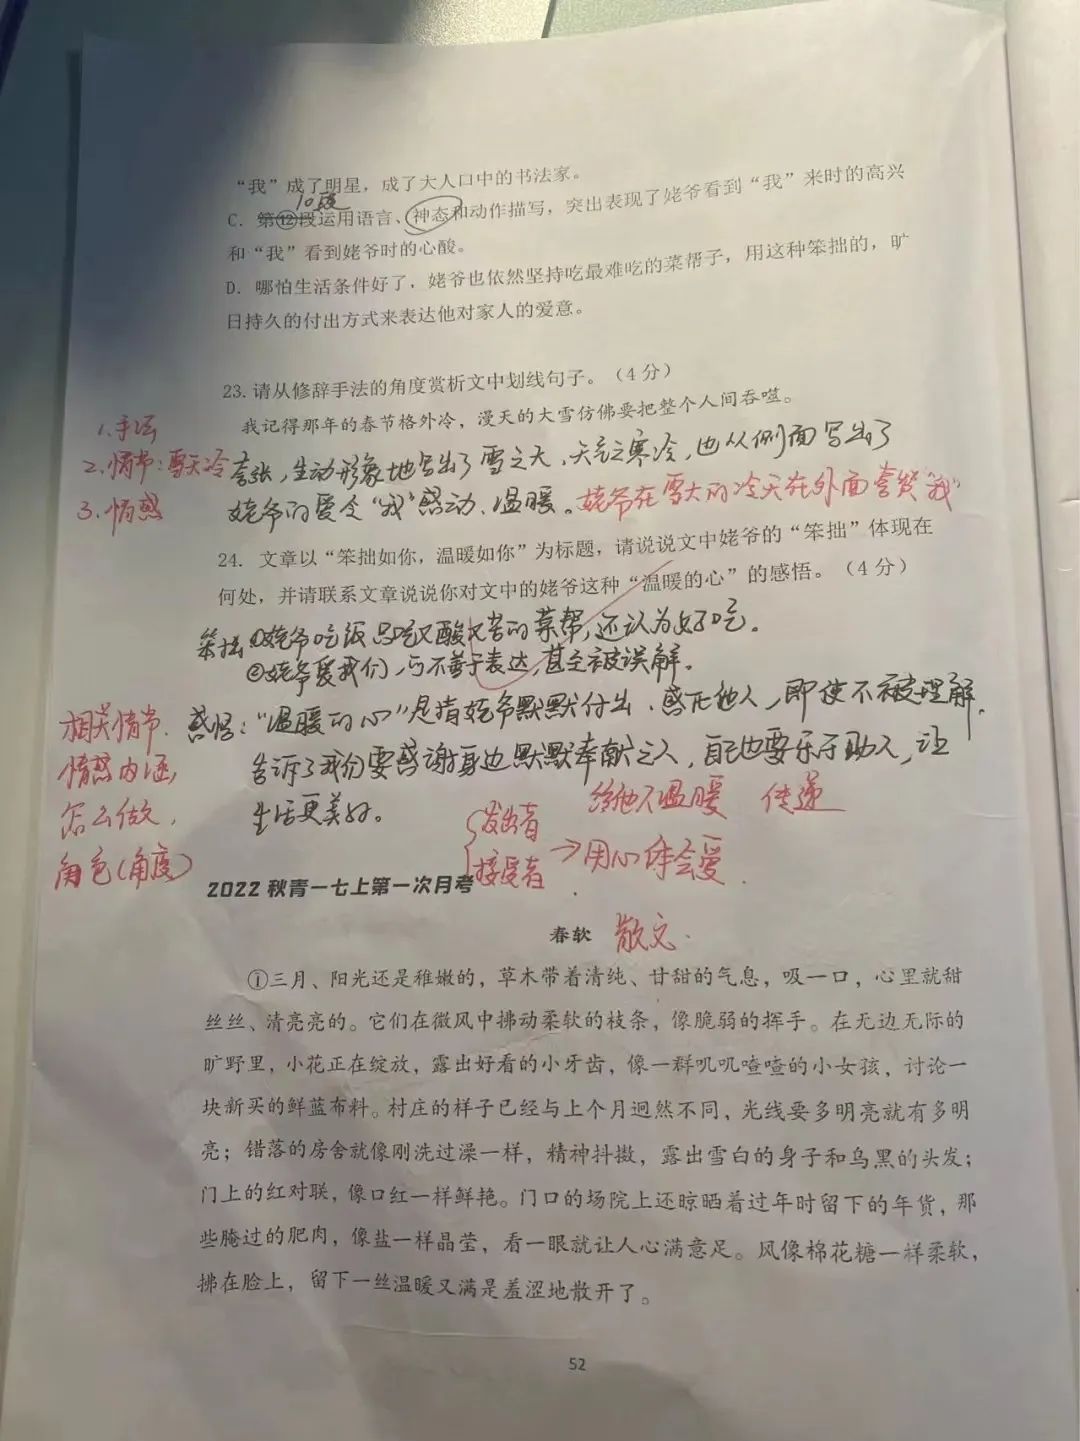 “我”成了明星，成了大人口中的书法家。
10段
C. 第⑫段运用语言、神态和动作描写，突出表现了姥爷看到“我”来时的高兴
和“我”看到姥爷时的心酸。
D. 哪怕生活条件好了，姥爷也依然坚持吃最难吃的菜帮子，用这种笨拙的，旷
日持久的付出方式来表达他对家人的爱意。
23. 请从修辞手法的角度赏析文中划线句子。（4分）
我记得那年的春节格外冷，漫天的大雪仿佛要把整个人间吞噬。
1.手法
2.情节：雪天冷
3.情感
夸张，生动形象地写出了雪之大、天气之寒冷，也从侧面写出了
姥爷的爱令“我”感动、温暖。姥爷在雪大的冷天在外面等候“我”
24. 文章以“笨拙如你，温暖如你”为标题，请说说文中姥爷的“笨拙”体现在
何处，并请联系文章说说你对文中的姥爷这种“温暖的心”的感悟。（4分）
笨拙①姥爷吃饭只吃又酸又苦的菜帮，还认为好吃。
②姥爷爱我们，亏不善于表达，甚至被误解。
相关情节、
情感内涵，
怎么做，
角色(角度)
感悟：“温暖的心”是指姥爷默默付出、感化他人，即使不被理解，
告诉了我们要感谢身边默默奉献之人，自己也要乐于助人，让
生活更美好。
给他人温暖 传递
发出者
接受者 →用心体会爱.
2022 秋青一七上第一次月考
春软 散文.
①三月、阳光还是稚嫩的，草木带着清纯、甘甜的气息，吸一口，心里就甜
丝丝、清亮亮的。它们在微风中拂动柔软的枝条，像脆弱的挥手。在无边无际的
旷野里，小花正在绽放，露出好看的小牙齿，像一群叽叽喳喳的小女孩，讨论一
块新买的鲜蓝布料。村庄的样子已经与上个月迥然不同，光线要多明亮就有多明
亮；错落的房舍就像刚洗过澡一样，精神抖擞，露出雪白的身子和乌黑的头发；
门上的红对联，像口红一样鲜艳。门口的场院上还晾晒着过年时留下的年货，那
些腌过的肥肉，像盐一样晶莹，看一眼就让人心满意足。风像棉花糖一样柔软，
拂在脸上，留下一丝温暖又满是羞涩地散开了。
52